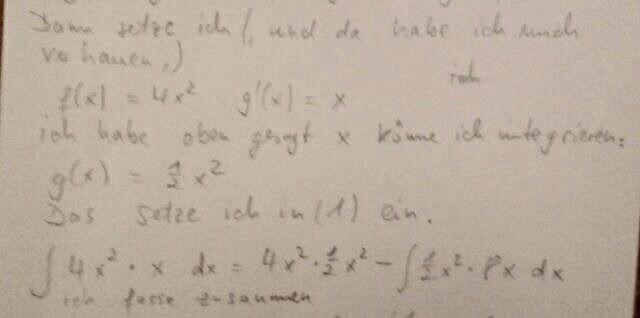 Dann setze ich (, und da habe ich mich
verhauen,)
ich
f(x) = 4x² g'(x) = x
ich habe oben gesagt x könne ich integrieren:
g(x) = ½ x²
Das setze ich in (1) ein.
∫ 4x² · x dx = 4x² · ½ x² − ∫ ½ x² · 8x dx
ich fasse zusammen